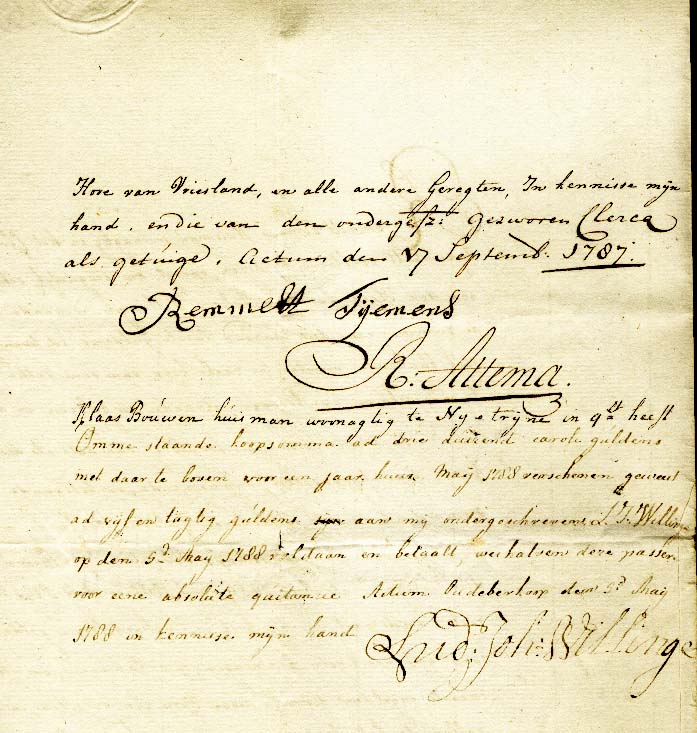 Hove van Vriesland, en alle andere Geregten, In kennisse mijn
hand, en die van den onderges/z: Gezworen Clercq
als getúige. Actum den 17 Septemb: 1787.
Remmelt Tijemens
R. Attema.
Klaas Boúwen húisman woonagtig te Nyetryne in qlt heeft
Omme staande koopsomma ad drie duizend carole guldens
met daar te boven voor een jaar huur Maij 1788 verschenen geweest
ad vijf en tagtig guldens aan mij ondergeschrevene L: J: Willinge
op den 5d Maij 1788 voldaan en betaalt, weshalven deze passere
voor eene absolúte quitancie Actum Oudeberkoop den 5d Maij
1788 in kennisse mijn hand
Lud: Joh: Willinge